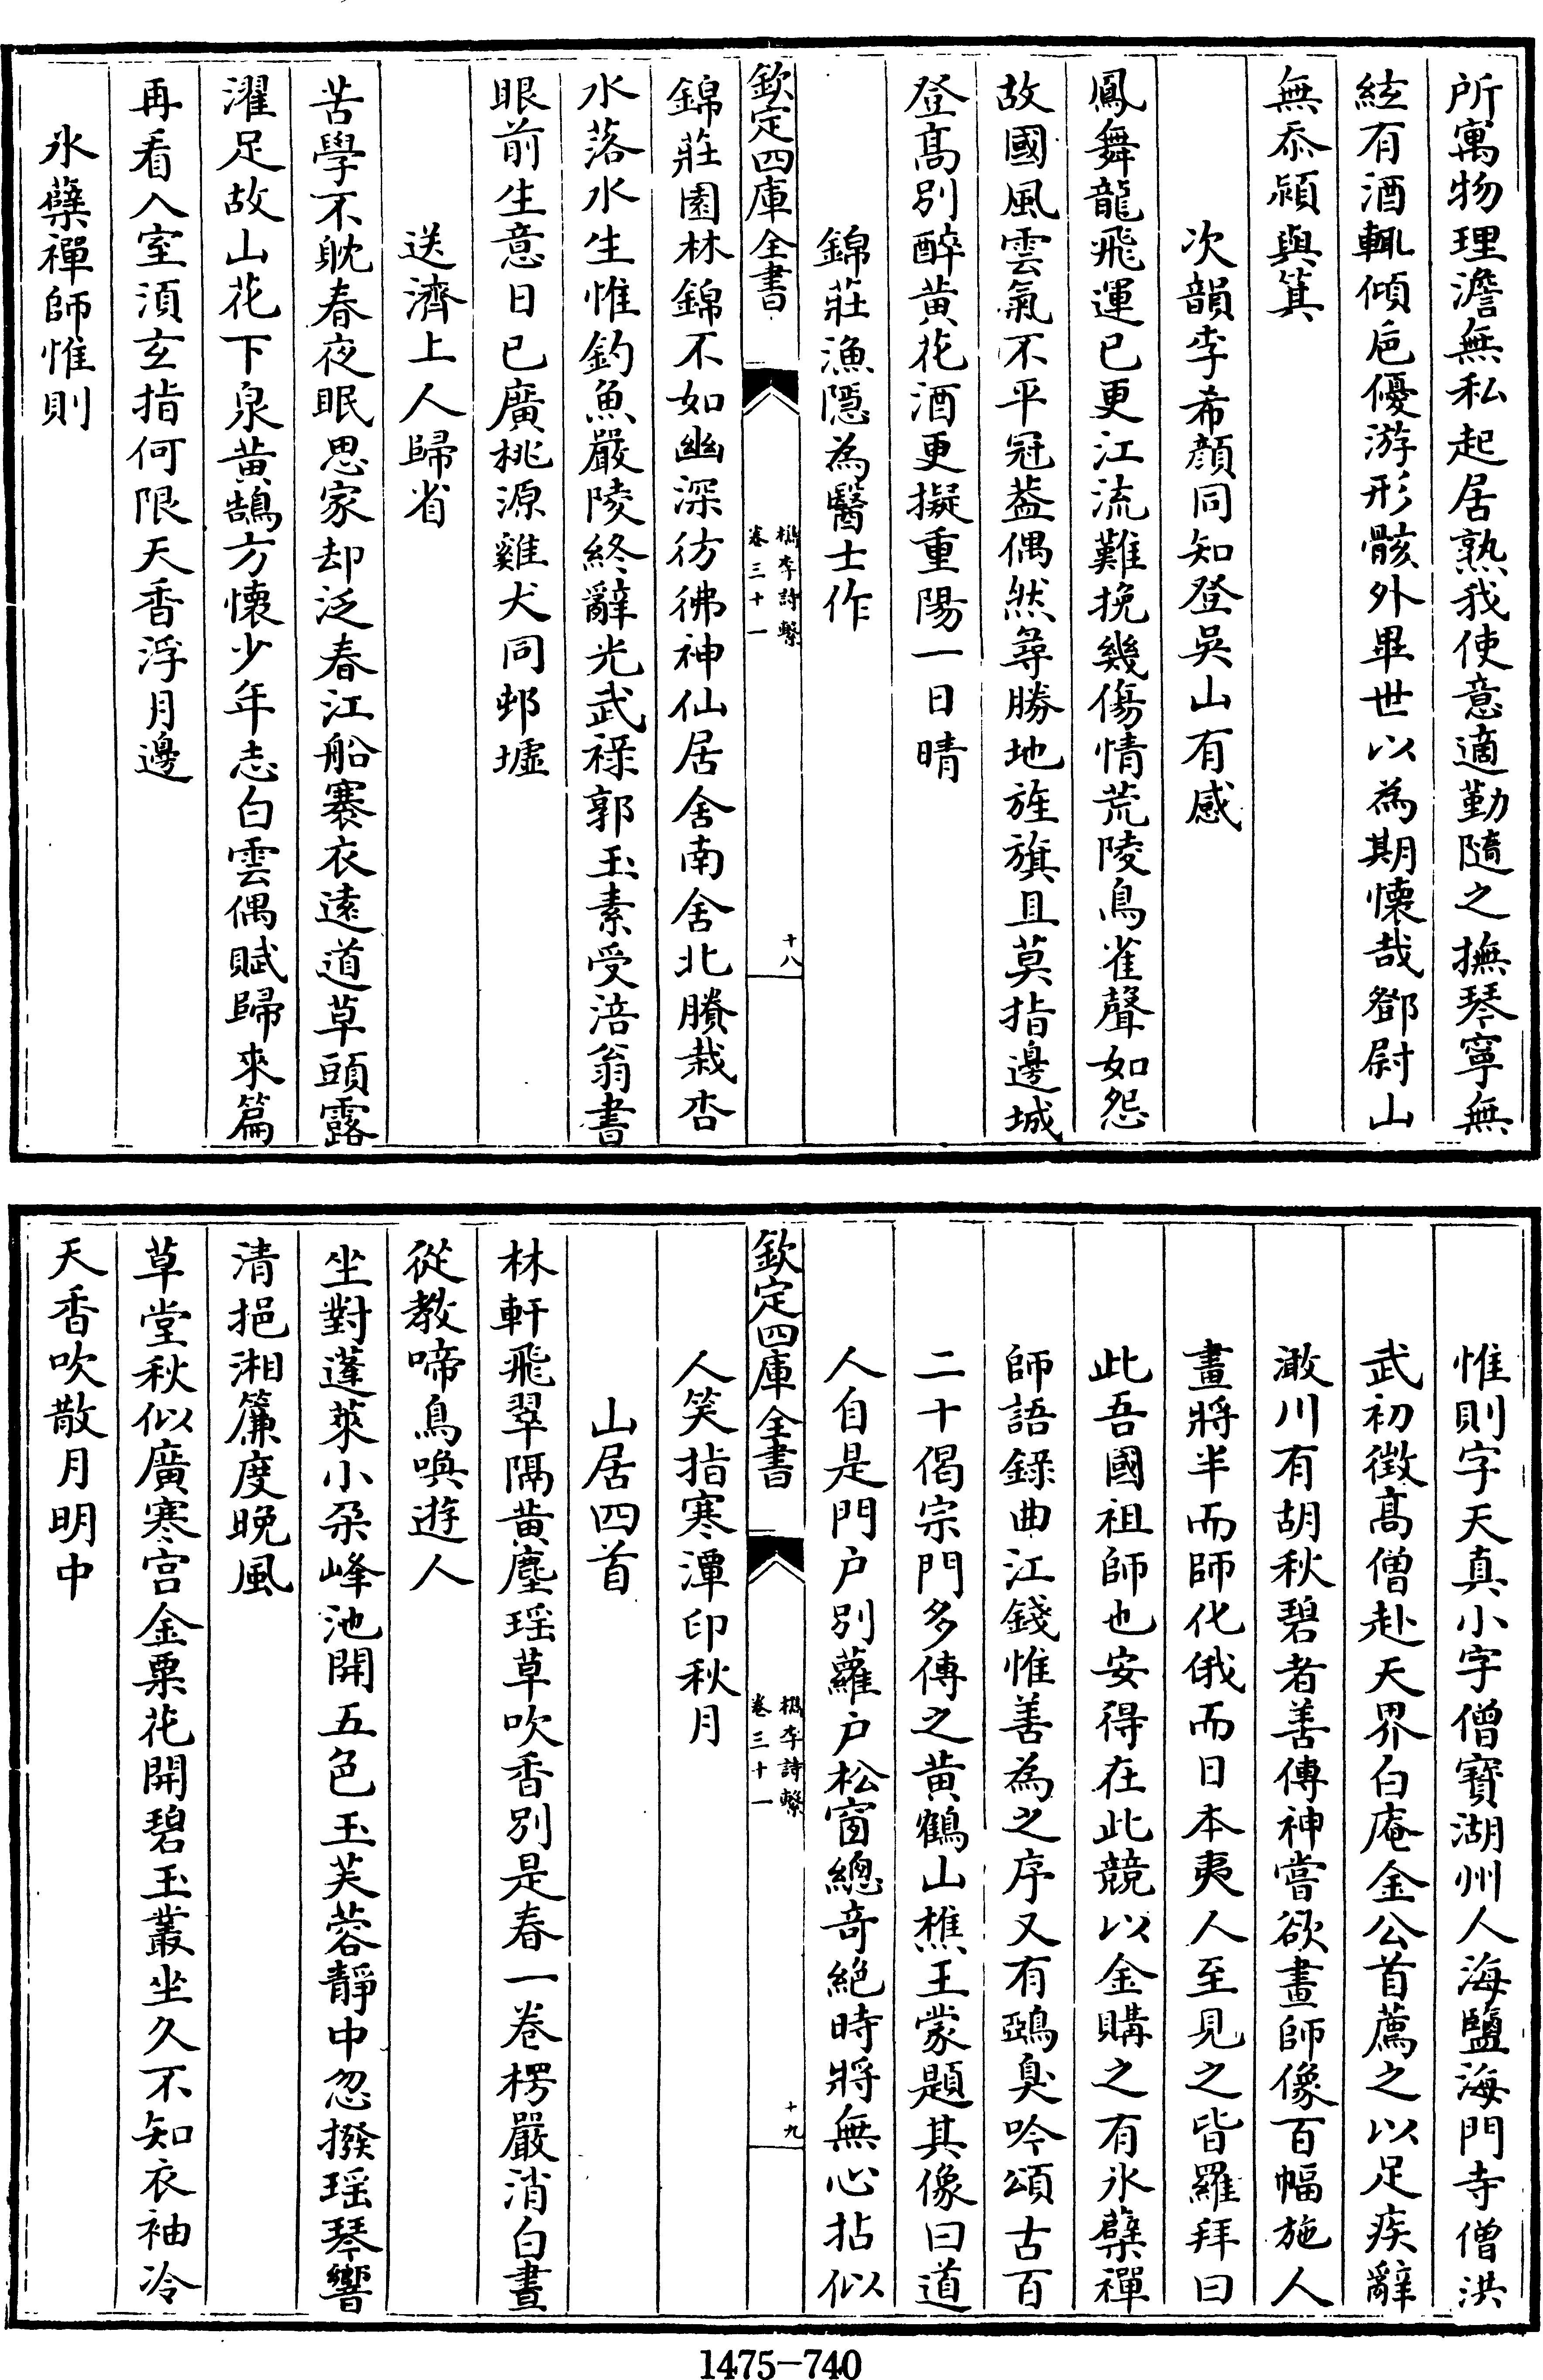 所寓物理澹無私起居熟我使意適勤隨之撫琴寧無
絃有酒輒傾巵優游形骸外畢世以為期懷哉鄧尉山
無忝潁與箕
次韻李希顔同知登吳山有感
鳳舞龍飛運已更江流難挽幾傷情荒陵鳥雀聲如怨
故國風雲氣不平冠葢偶然尋勝地旌旗且莫指邊城
登髙別醉黄花酒更擬重陽一日晴
錦莊漁隱為醫士作
欽定四庫全書
檇李詩繫
卷三十一
十八
錦莊園林錦不如幽深彷彿神仙居舍南舍北賸栽杏
水落水生惟釣魚嚴陵終辭光武祿郭玉素受涪翁書
眼前生意日已廣桃源雞犬同邨墟
送濟上人歸省
苦學不躭春夜眠思家却泛春江船褰衣遠道草頭露
濯足故山花下泉黄鵠方懷少年志白雲偶賦歸來篇
再看入室湏玄指何限天香浮月邊
氷蘖禪師惟則
惟則字天真小字僧寶湖州人海鹽海門寺僧洪
武初徴髙僧赴天界白庵金公首薦之以足疾辭
澉川有胡秋碧者善傳神嘗欲畫師像百幅施人
畫將半而師化俄而日本夷人至見之皆羅拜曰
此吾國祖師也安得在此競以金購之有氷蘖禪
師語録曲江錢惟善為之序又有鴉臭吟頌古百
二十偈宗門多傳之黄鶴山樵王蒙題其像曰道
人自是門户別蘿户松窗總竒絶時將無心拈似
欽定四庫全書
檇李詩繫
卷三十一
十九
人笑指寒潭印秋月
山居四首
林軒飛翠隔黄塵瑶草吹香別是春一卷楞嚴消白晝
從教啼鳥喚遊人
坐對蓬萊小朶峰池開五色玉芙蓉靜中忽撥瑶琴響
清挹湘簾度晚風
草堂秋似廣寒宫金粟花開碧玉叢坐久不知衣袖冷
天香吹散月明中
1475-740